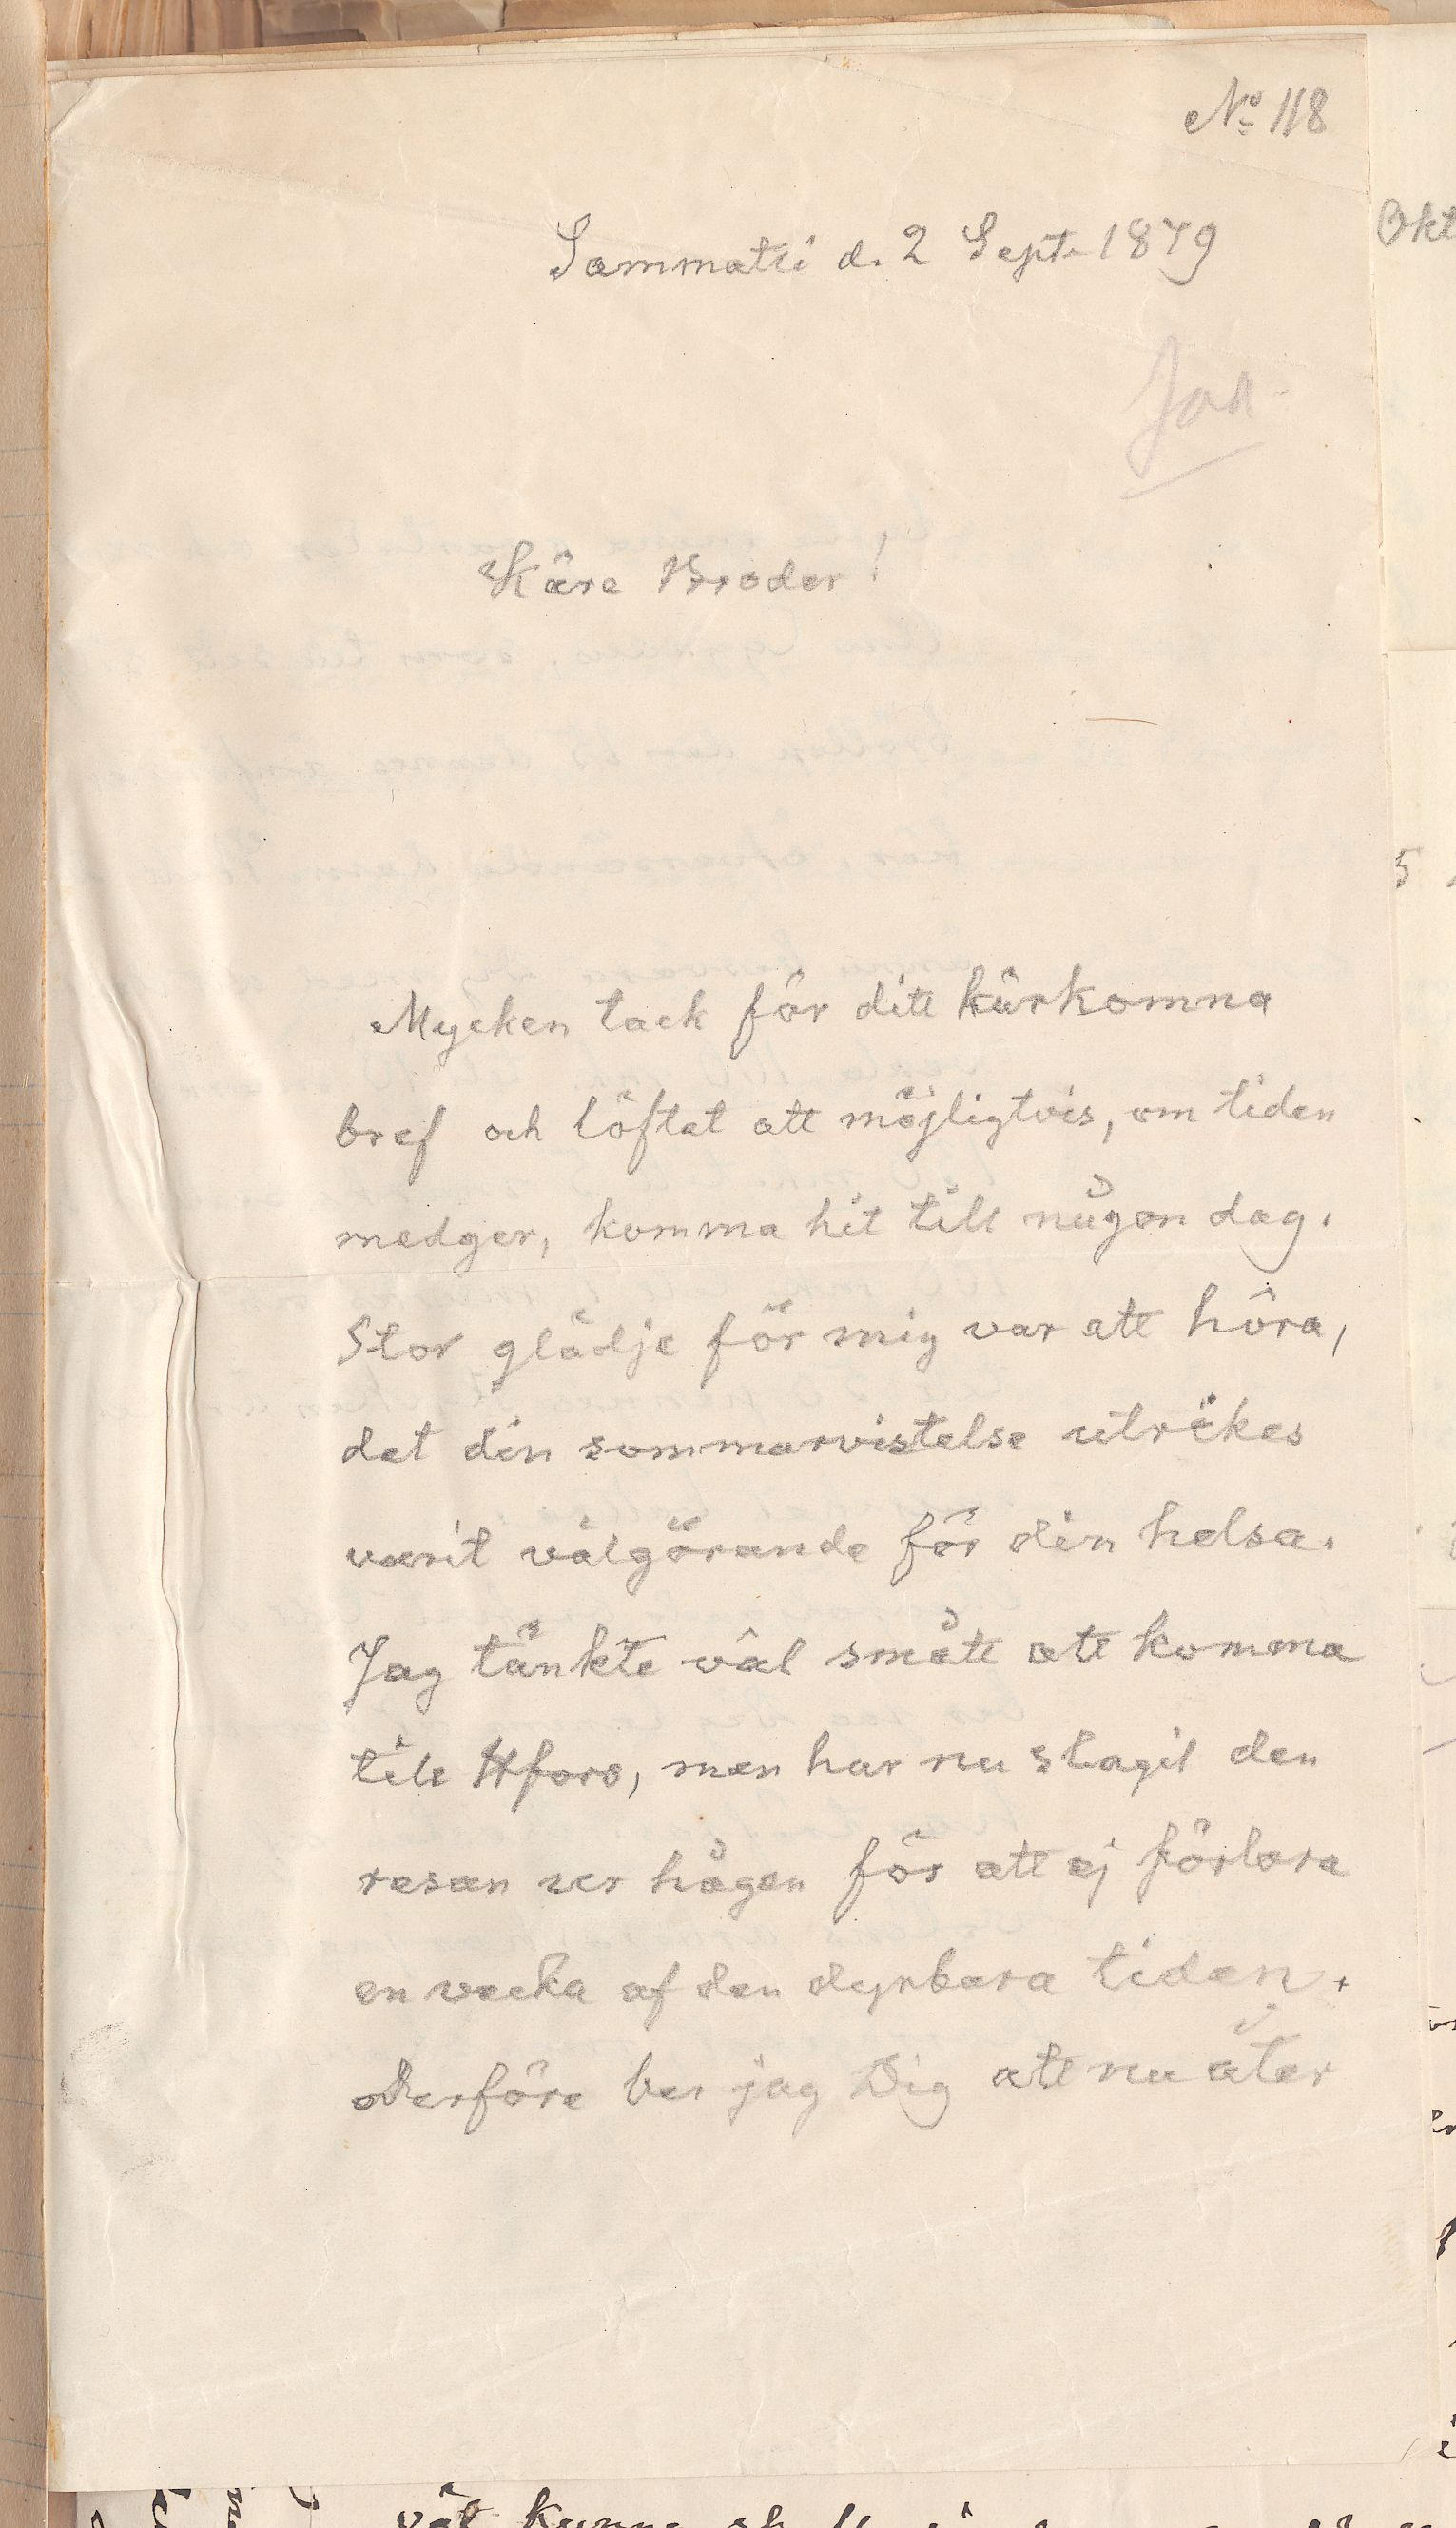 No 118
Sammatti d. 2 Sept. 1879
Käre Broder!
Mycken tack för ditt kärkomna
bref och löftet att möjligtvis, om tiden
medger, komma hit till någon dag.
Stor glädje för mig var att höra,
det din sommarvistelse utrikes
varit välgörande för din helsa.
Jag tänkte väl smått att komma
till Hfors, men har nu slagit den
resan ur hågen för att ej förlora
en vecka af den dyrbara tiden.
Derföre ber jag Dig att nu åter